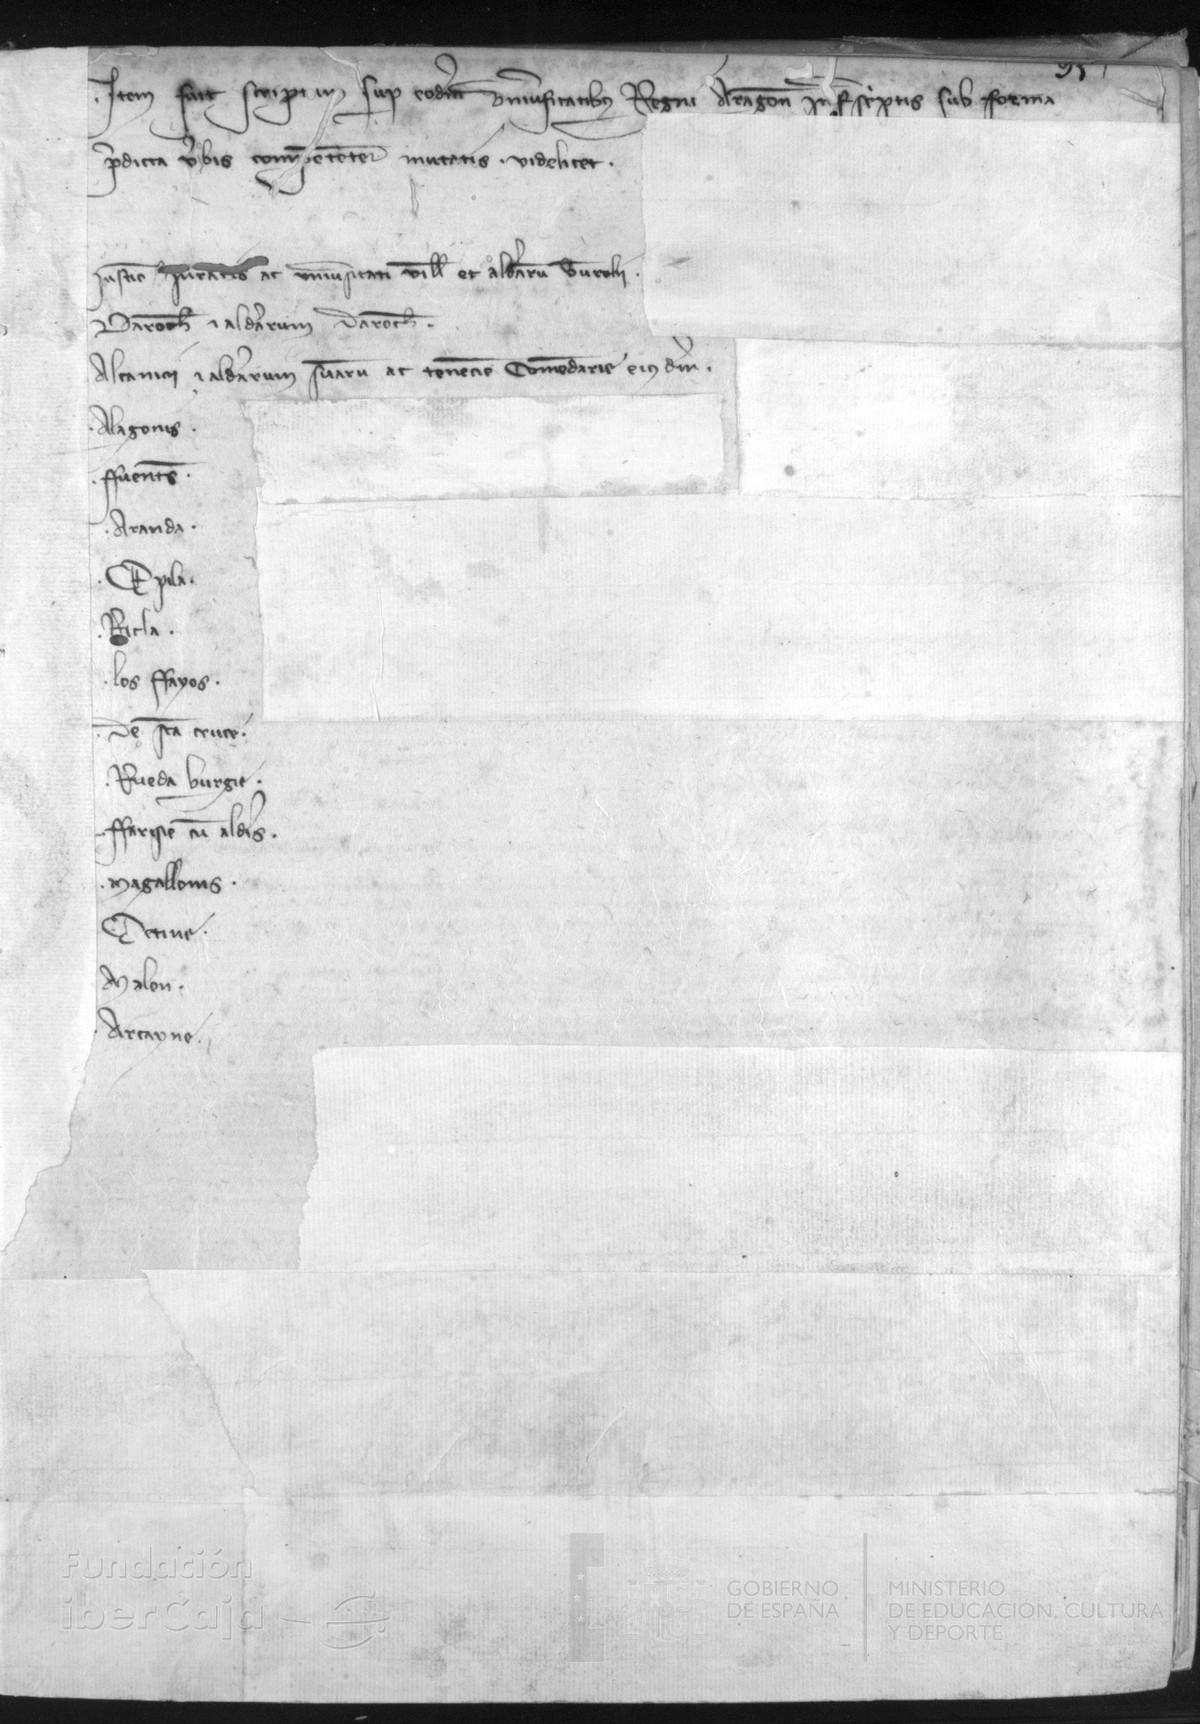 95
Item fuit scriptum sup eodem universitatibus Regni Aragon infrascriptis sub forma
predicta verbis competenter mutatis . videlicet .
Justicie Juratis ac universitati ville et aldearum Turolii .
Daroche et aldearum Daroche .
Alcanicii et aldearum suarum ac tenencie Comendarie eiusdem .
. Alagonis .
. ffuentes .
. Aranda .
. Epila .
. Ricla .
. los ffayos .
. De sta cruce .
. Rueda burgie .
. ffarisie cum aldeis .
. Magallonis .
Cetine .
Malon .
. Arcayne .
Fundación
iberCaja
GOBIERNO
DE ESPAÑA
MINISTERIO
DE EDUCACIÓN, CULTURA
Y DEPORTE